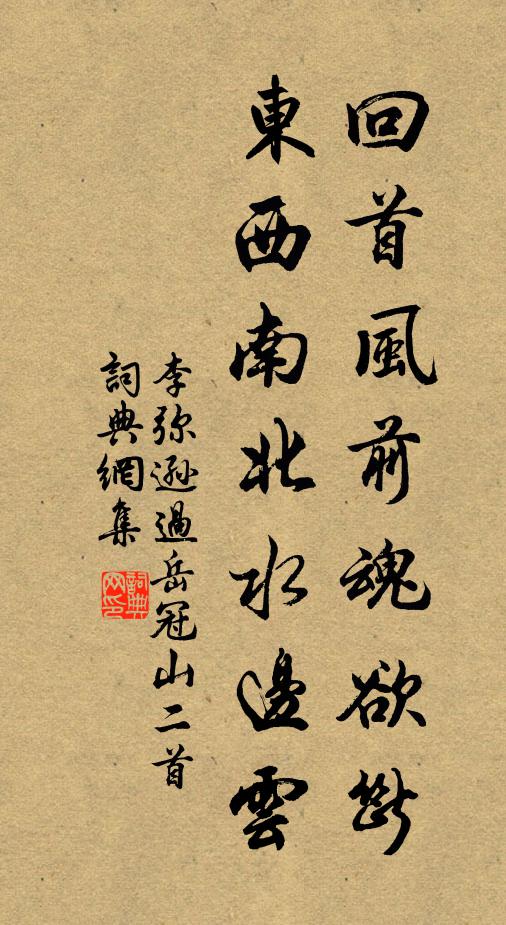 回首風前魂欲斷
東西南北水邊雲
李弥遜過岳冠山二首
詞典網集
詞典
网印